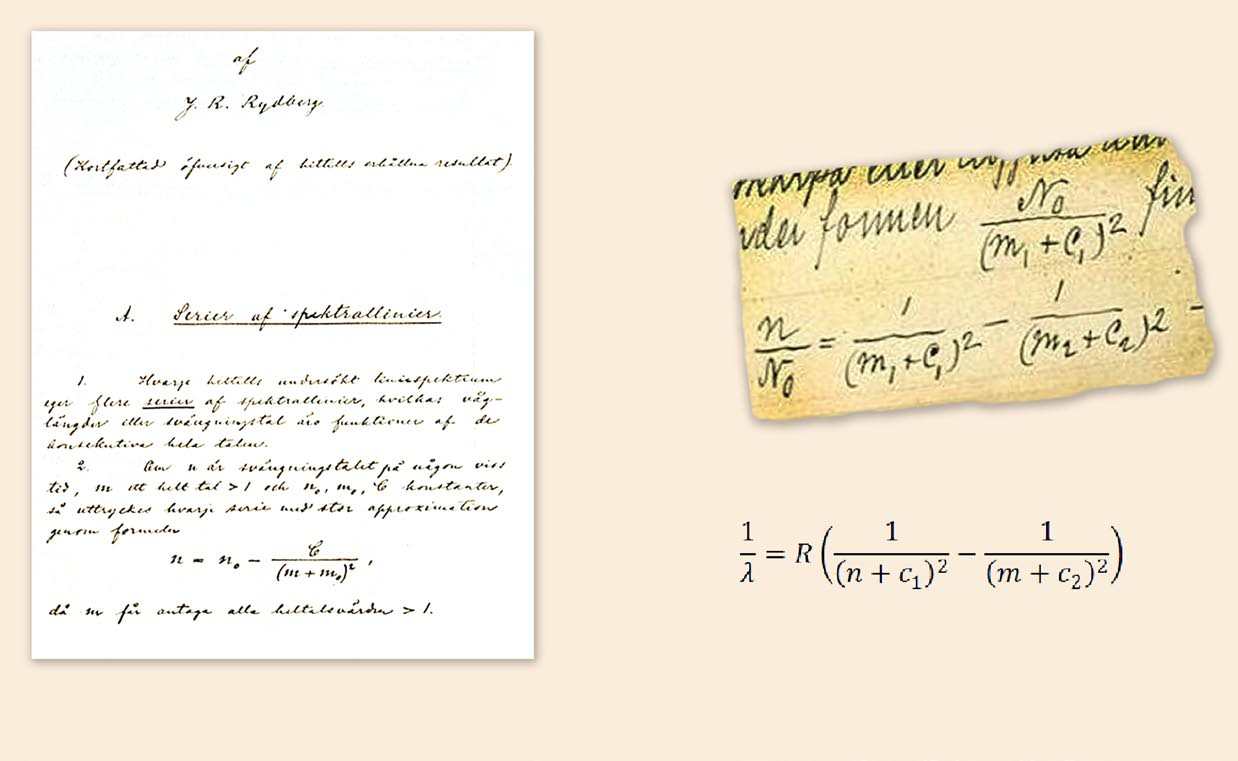 af
J. R. Rydberg.
(Kortfattad öfversigt af hittills erhållna resultat)
A. Serier af spektrallinier.
1. Hvarje hittills undersökt liniespektrum
eger flere serier af spektrallinier, hvilkas våg-
längder eller svängningstal äro funktioner af de
konsekutiva hela talen.
2. Om n är svängningstalet på någon viss
tid, m ett helt tal > 1 och n₀, m₀, C konstanter,
så uttryckes hvarje serie med stor approximation
genom formeln
n = n₀ - C/(m + m₀)²,
då m får antaga alla heltalsvärden > 1.
eller
formen N₀/(m₁ + C₁)²
n/N₀ = 1/(m₁ + C₁)² - 1/(m₂ + C₂)² -
1/λ = R(1/(n + c₁)² − 1/(m + c₂)²)